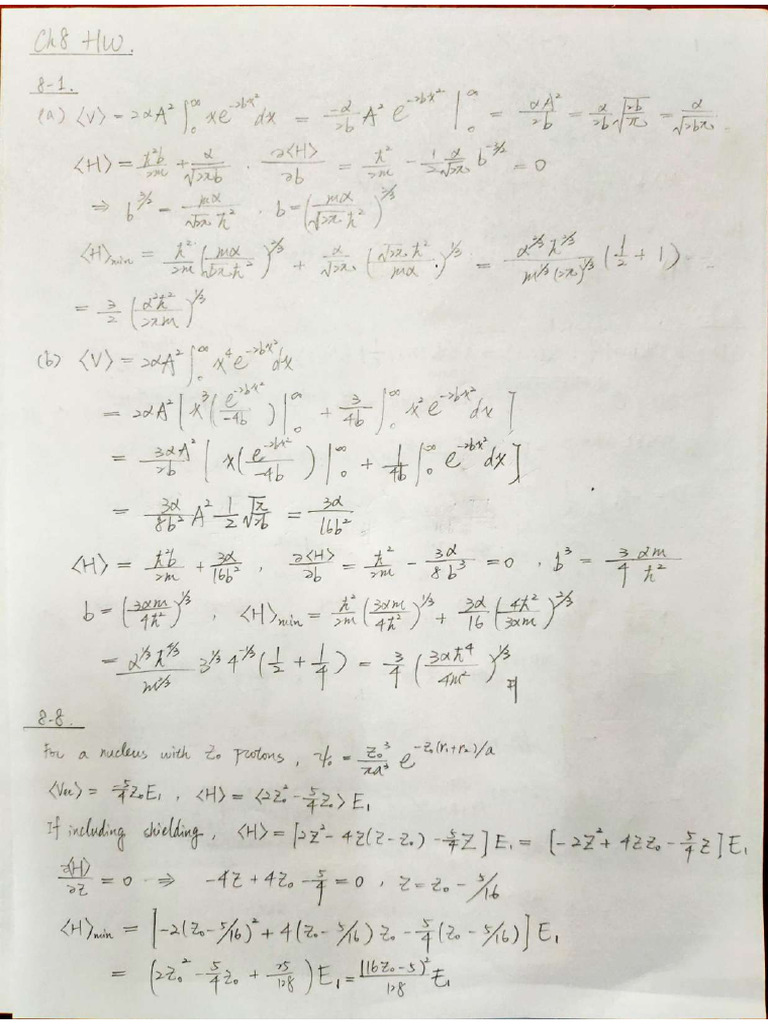 Ch8 HW.
8-1.
(a) ⟨V⟩ = 2αA² ∫₀^∞ xe^(-2bx²) dx = (-α/2b) A² e^(-2bx²) |₀^∞ = αA²/2b = (α/2b)√(2b/π) = α/√(2bπ)
⟨H⟩ = ħ²b/2m + α/√(2πb) . ∂⟨H⟩/∂b = ħ²/2m - (1/2)(α/√(2π)) b^(-3/2) = 0
⇒ b^(3/2) = mα/(√(2π) ħ²) . b = (mα/(√(2π) ħ²))^(2/3)
⟨H⟩min = (ħ²/2m)(mα/(√(2π) ħ²))^(2/3) + (α/√(2π))(√(2π) ħ²/mα)^(1/3) = (α^(2/3) ħ^(2/3))/(m^(1/3) (2π)^(1/3)) (1/2 + 1)
= (3/2)(α²ħ²/2πm)^(1/3)
(b) ⟨V⟩ = 2αA² ∫₀^∞ x⁴e^(-2bx²) dx
= 2αA² [x³(e^(-2bx²)/-4b) |₀^∞ + (3/4b) ∫₀^∞ x²e^(-2bx²) dx]
= (3αA²/2b) [x(e^(-2bx²)/-4b) |₀^∞ + (1/4b) ∫₀^∞ e^(-2bx²) dx]
= (3α/8b²) A² (1/2)√(π/2b) = 3α/16b²
⟨H⟩ = ħ²b/2m + 3α/16b² , ∂⟨H⟩/∂b = ħ²/2m - 3α/8b³ = 0 , b³ = (3/4)(αm/ħ²)
b = (3αm/4ħ²)^(1/3) , ⟨H⟩min = (ħ²/2m)(3αm/4ħ²)^(1/3) + (3α/16)(4ħ²/3αm)^(2/3)
= (α^(1/3) ħ^(4/3)/m^(2/3)) 3^(1/3) 4^(-1/3) (1/2 + 1/4) = (3/4)(3αħ⁴/4m²)^(1/3) #
8-8.
For a nucleus with Z₀ protons, ψ₀ = (Z₀³/πa³) e^(-Z₀(r₁+r₂)/a)
⟨Vee⟩ = -(5/4)Z₀E₁ , ⟨H⟩ = (2Z₀² - (5/4)Z₀) E₁
If including shielding, ⟨H⟩ = [2Z² - 4Z(Z-Z₀) - (5/4)Z] E₁ = [-2Z² + 4ZZ₀ - (5/4)Z] E₁
∂⟨H⟩/∂Z = 0 ⇒ -4Z + 4Z₀ - 5/4 = 0 , Z = Z₀ - 5/16
⟨H⟩min = [-2(Z₀ - 5/16)² + 4(Z₀ - 5/16) Z₀ - (5/4)(Z₀ - 5/16)] E₁
= (2Z₀² - (5/4)Z₀ + 25/128) E₁ = ((16Z₀-5)²/128) E₁